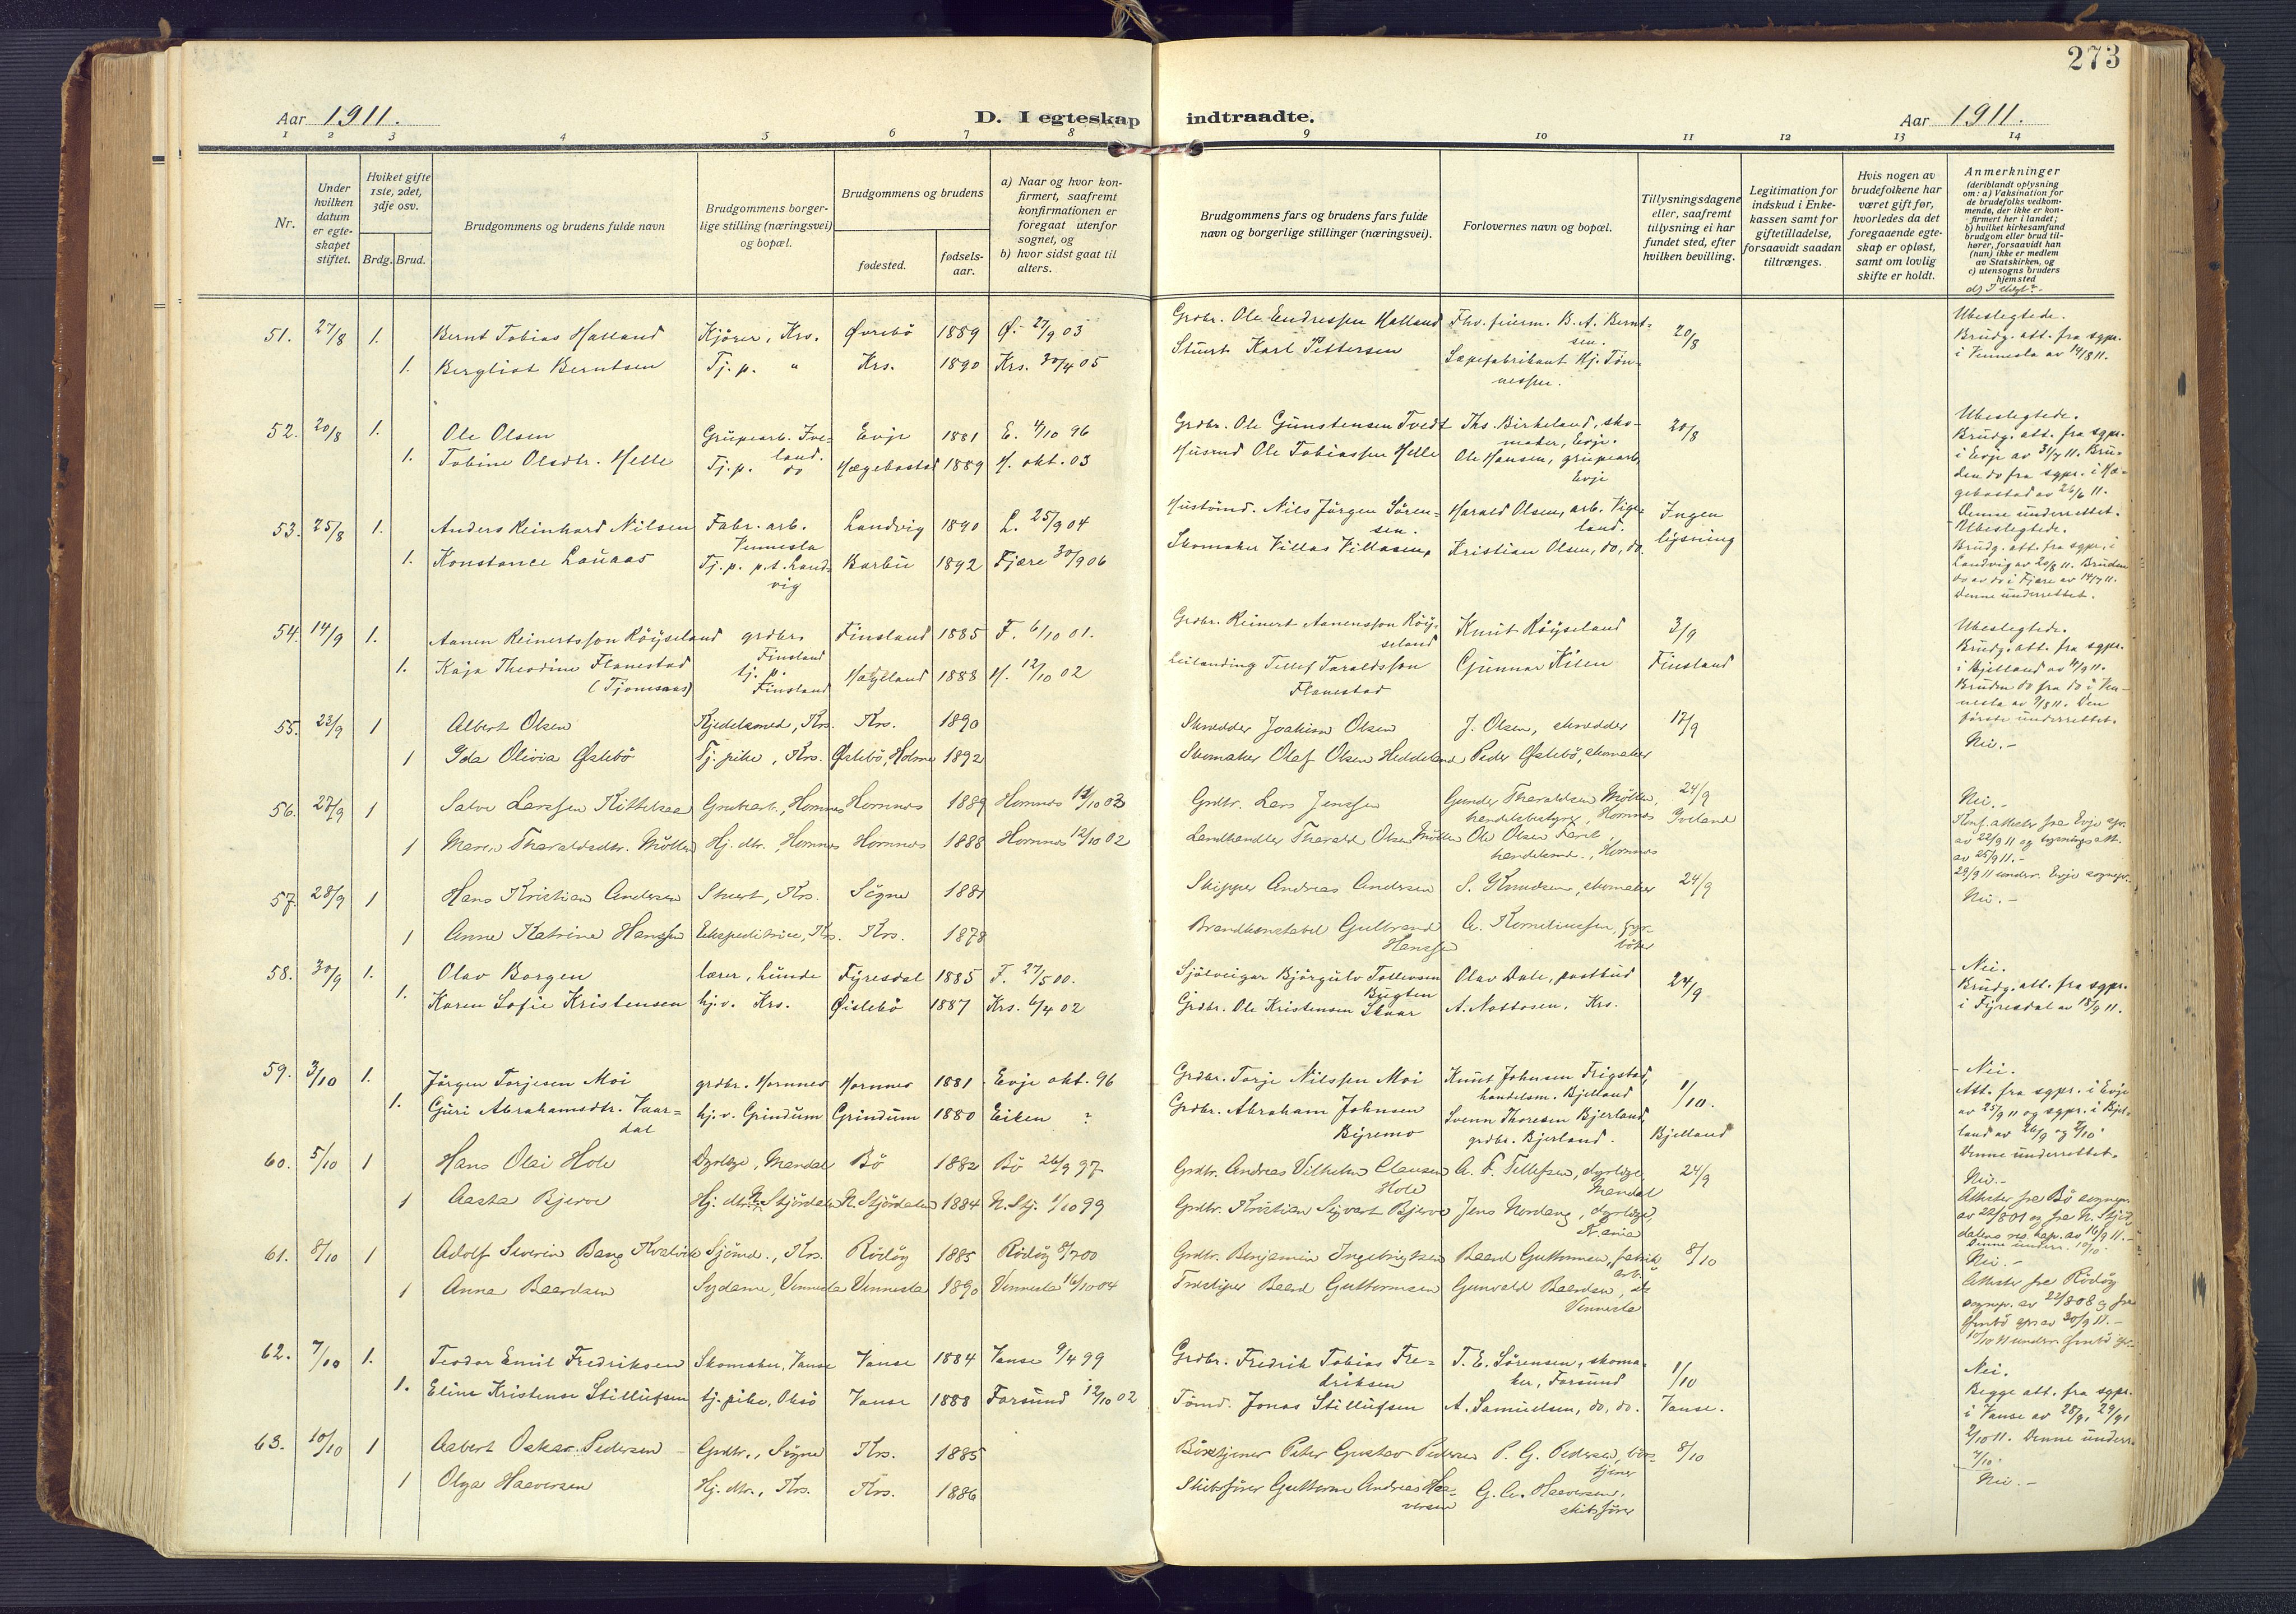 273
Aar 1911.
D. I egteskap indtraadte.
Aar 1911.
1 2 3 4 5 6 7 8 9 10 11 12 13 14
Nr.
Under hvilken datum er egteskapet stiftet.
Hvilket gifte 1ste, 2det, 3dje osv.
Brdg. Brud.
Brudgommens og brudens fulde navn
Brudgommens borgerlige stilling (næringsvei) og bopæl.
Brudgommens og brudens
fødested.
fødselsaar.
a) Naar og hvor konfirmert, saafremt konfirmationen er foregaat utenfor sognet, og
b) hvor sidst gaat til alters.
Brudgommens fars og brudens fars fulde navn og borgerlige stillinger (næringsvei).
Forlovernes navn og bopæl.
Tillysningsdagene eller, saafremt tillysning ei har fundet sted, efter hvilken bevilling.
Legitimation for indskud i Enkekassen samt for giftetilladelse, forsaavidt saadan tiltrænges.
Hvis nogen av brudefolkene har været gift før, hvorledes da det foregaaende egteskap er opløst, samt om lovlig skifte er holdt.
Anmerkninger
(deriblandt oplysning om: a) Vaksination for de brudefolks vedkommende, der ikke er konfirmert her i landet;
b) hvilket kirkesamfund brudgom eller brud tilhører, forsaavidt han (hun) ikke er medlem av Statskirken, og
c) utensogns bruders hjemsted
51. 27/8 1. Bernt Tobias Halland Kjører, Krs. Øvrebö 1889 Ø. 27/9 03 Grdbr. Ole Endressen Halland Fhv. fiurm. B. A. Berntsen. 20/8 Ubeslegtede. Brudg. att. fra sgpr. i Vennesla av 14/8 11.
1. Bergliot Berntsen Tj. p. " Krs. 1890 Krs. 30/4 05 Stuert Karl Pettersen Sæpefabrikant Hj. Tönnessen.
52. 20/8 1. Ole Olsen Grubearb. Iveland. Evje 1881 E. 4/10 96 Grdbr. Ole Gunstensen Tvedt Ths. Birkeland, skomaker, Evje. 20/8 Ubeslegtede. Brudg. att. fra sgpr. i Evje av 31/7 11. Bruden do fra sgpr. i Hægebostad av 26/6 11. Denne underrettet.
1. Tobine Olsdtr. Helle Tj. p. do Hægebostad 1889 H. okt. 03 Husmd Ole Tobiassen Helle Ole Hansen, grubearb. Evje
53. 25/8 1. Anders Reinhard Nilsen Fabr. arb. Vennesla Landvig 1890 L. 25/9 04 Hustömd. Nils Jörgen Sörensen. Harald Olsen, arb. Vigeland. Ingen lysning Ubeslegtede. Brudg. att. fra sgpr. i Landvig av 20/8 11. Bruden do av do i Fjære av 14/7 11. Denne underrettet.
1. Konstance Lauaas Tj. p. p.t. Landvig Barbu 1892 Fjære 30/9 06 Skomaker Villas Villasen, Kristian Olsen, do, do.
54. 14/9 1. Aanen Reinertsson Röyseland grdbr. Finsland Finsland 1885 F. 6/10 01. Grdbr. Reinert Aanensson Röyseland Knut Röyseland 3/9 Finsland Ubeslegtede. Brudg. att. fra sgpr. i Bjelland av 11/9 11. Bruden do fra do i Vennesla av 9/8 11. Den første underrettet.
1. Kaja Theodine Flanestad (Tjomsaas) tj. p. Finsland 1888 H. 12/10 02 Leilanding Tellef Taraldsson Flanestad Gunnar Kilen
55. 23/9 1 Albert Olsen Kjedelsmed, Krs. Krs. 1890 Skrædder Joakim Olsen J. Olsen, skrædder 17/9 Nei.-
1 Ida Olivia Øslebö Tj. pike, Krs. Øslebö, Holme 1892 Skomaker Olaf Olsen Heddeland Peder Øslebö, skomaker
56. 27/9 1 Salve Larssen Kittelsaa Grubearb., Hornnes Hornnes 1889 Hornnes 11/10 03 Grdbr. Lars Jenssen Gunder Tharaldsen Mölten, handelsbetyrer, Hornnes 24/9 Iveland Nei.- Konf. attester fra Evje spr. av 22/9 11 og lysningsatt. av 25/9 11.- 29/9 11 underr. Evje sognepr.
1 Maren Tharaldsdtr. Mölten Hj. dtr. Hornnes Hornnes 1888 Hornnes 12/10 02 Landhandler Tharald Olsen Mölten Ole Olsen handelsmd., Hornnes
57. 28/9 1 Hans Kristian Andersen Stuert, Krs. Sögne 1881 Skipper Andreas Andersen S. Knudsen, skomaker 24/9 Nei.-
1 Anna Katrine Hanssen Ekspeditrice, Krs. Krs. 1878 Brandkonstabel Gulbrand Hanssen A. Korneliussen, fyrböter
58. 30/9 1. Olav Borgen lærer, Lunde Fyresdal 1885 F. 27/5 00. Sjölveigar Björgulv Tollevsen Bugten Olav Dale, postbud 24/9 Nei. Brudg. att. fra sgpr. i Fyresdal av 18/9 11.
1. Karen Sofie Kristensen hj. v. Krs. Øislebö 1887 Krs. 6/4 02 Grdbr. Ole Kristensen Skaar A. Nottosen, Krs.
59. 3/10 1. Jörgen Torjesen Moi grdbr. Hornnes Hornnes 1881 Evje okt. 96 Grdbr. Torje Nilssen Moi Knut Johnsen Frigstad, handelsm. Bjelland 1/10. Bjelland Nei. Att. fra sgpr. i Evje av 25/9 11 og sgpr. i Bjelland av 26/9 og 2/10. Denne underrettet.
1. Guri Abrahamsdtr. Vaardal hj. v. Grindum Grindum 1880 Eiken ? Grdbr. Abraham Johnsen Byremo Svenn Thoresen Bjerland, grdbr. Bjerland.
60. 5/10 1 Hans Olai Hole Dyrlæge, Mandal Bö 1882 Bö 26/9 97 Grdbr. Andreas Vilhelm Clausen Hole A. F. Tellefsen, dyrlæge, Mandal 24/9 Nei.- Attester fra Bö sognepr. av 22/8 01 og fra N. Stjördalens res. kap. av 16/9 11.- Denne underr. 10/10.
1 Aasta Bjerve Hj. dtr. N. Stjördalen N. Stjördalen 1884 N. Stj. 1/10 99 Grdbr. Kristian Sigvart Bjerve Jens Nordang, dyrlæge,
61. 8/10 1 Adolf Severin Bang Kvalvik Sjömd., Krs. Rödöy 1885 Rödöy 8/7 00 Grdbr. Benjamin Ingebrigtsen Baard Guttormsen, fabrik arb. 8/10 Nei.- Attester fra Rödöy sognepr. av 22/8 08 og fra spr av 30/9 11.-
1 Anna Baardsen Sydame, Vennesla Vennesla 1890 Vennesla 16/10 04 Træsliper Baard Guttormsen Gunvald Baardsen, do Vennesla
62. 7/10 1. Teodor Emil Fredriksen Skomaker, Vanse Vanse 1884 Vanse 9/4 99 Grdbr. Fredrik Tobias Fredriksen T. E. Sörensen, skomaker, Farsund 1/10 Vanse. Nei. Begge att. fra sgpr. i Vanse av 28/9, 29/9, 2/10 11. Denne underr. 7/10.
1. Eline Kristense Stillufsen tj. pike, Oksö Vanse 1888 Farsund 12/10 02 Tömd. Jonas Stillufsen A. Samuelsen, do, do.
63. 10/10 1 Aabert Oskar Pedersen Grdbr., Sögne Krs. 1885 Böxtjener Peter Gustav Pedersen P. G. Pedersen, 8/10 Nei.-
1 Olga Haaversen Hj. dtr., Krs. Krs. 1886 Skibsfører Guttorm Andreas Haaversen G. A. Haaversen, skibsfører